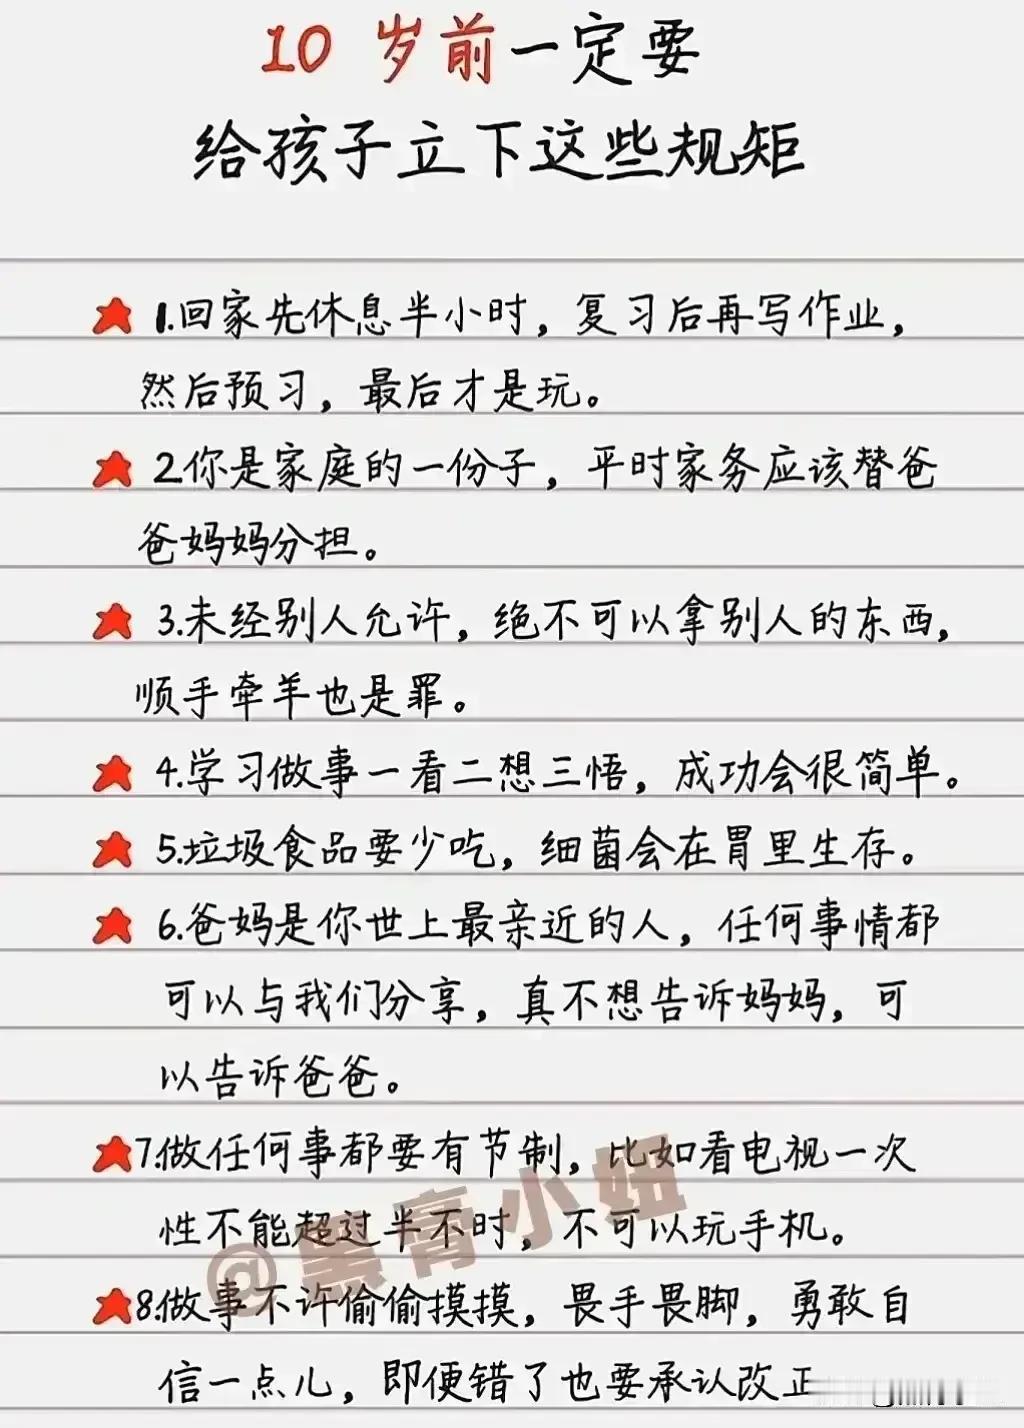 10 岁前一定要
给孩子立下这些规矩
1.回家先休息半小时，复习后再写作业，
然后预习，最后才是玩。
2.你是家庭的一份子，平时家务应该替爸
爸妈妈分担。
3.未经别人允许，绝不可以拿别人的东西，
顺手牵羊也是罪。
4.学习做事一看二想三悟，成功会很简单。
5.垃圾食品要少吃，细菌会在胃里生存。
6.爸妈是你世上最亲近的人，任何事情都
可以与我们分享，真不想告诉妈妈，可
以告诉爸爸。
7.做任何事都要有节制，比如看电视一次
性不能超过半不时，不可以玩手机。
@黑膏小妞
8.做事不许偷偷摸摸，畏手畏脚，勇敢自
信一点儿，即便错了也要承认改正